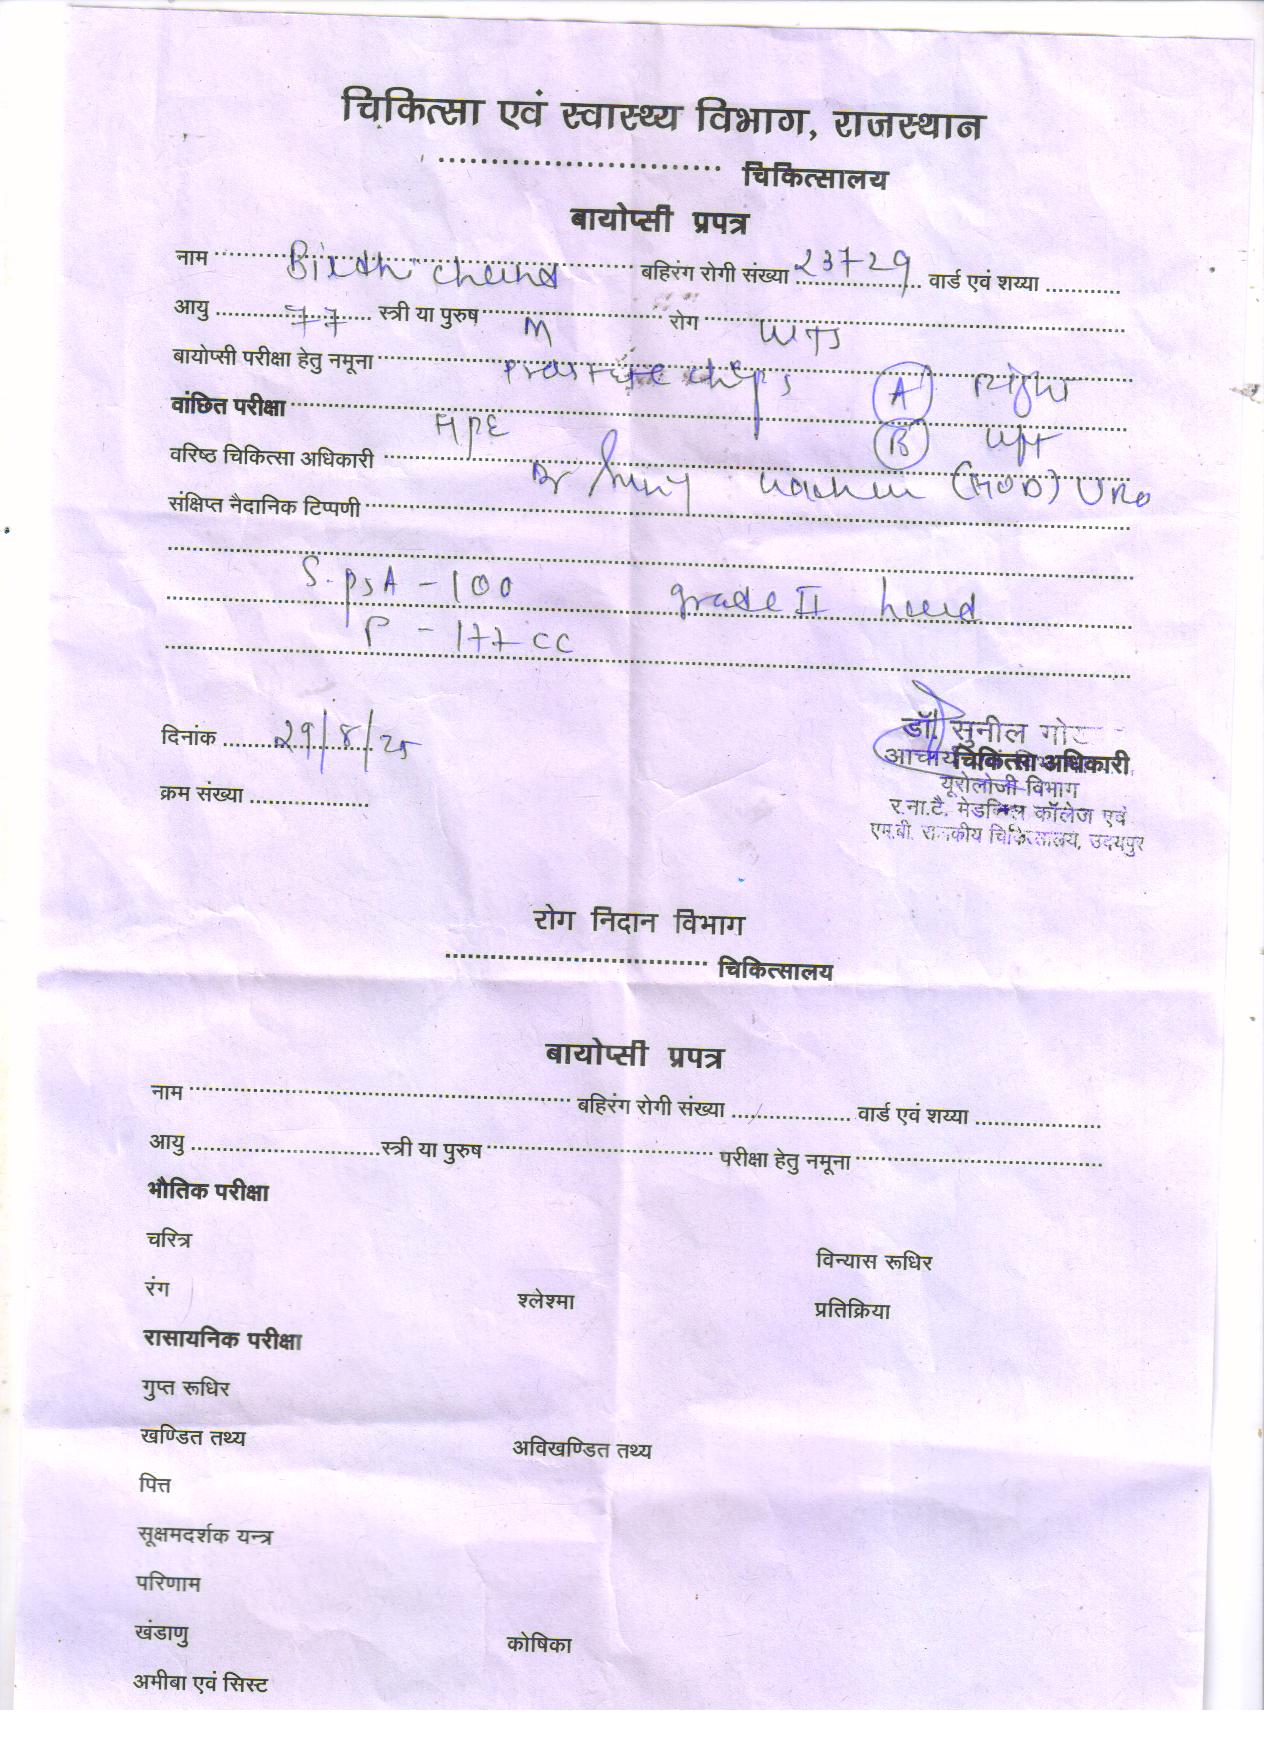 चिकित्सा एवं स्वास्थ्य विभाग, राजस्थान
........................... चिकित्सालय
बायोप्सी प्रपत्र
नाम Birdhi chand बहिरंग रोगी संख्या 23729 वार्ड एवं शय्या
आयु 77 स्त्री या पुरुष M रोग
बायोप्सी परीक्षा हेतु नमूना prostate chips A Right
वांछित परीक्षा HPE B left
वरिष्ठ चिकित्सा अधिकारी Dr (HOD) Uro
संक्षिप्त नैदानिक टिप्पणी
S. PSA - 100 grade II hard
P - 177 cc
दिनांक 29/8/25
डॉ. सुनील
चिकित्सा अधिकारी
क्रम संख्या
यूरोलोजी विभाग
र.ना.टै. मेडिकल कॉलेज एवं
एम.बी. राजकीय चिकित्सालय, उदयपुर
रोग निदान विभाग
........................... चिकित्सालय
बायोप्सी प्रपत्र
नाम बहिरंग रोगी संख्या वार्ड एवं शय्या
आयु स्त्री या पुरुष परीक्षा हेतु नमूना
भौतिक परीक्षा
चरित्र विन्यास रूधिर
रंग श्लेश्मा प्रतिक्रिया
रासायनिक परीक्षा
गुप्त रूधिर
खण्डित तथ्य अविखण्डित तथ्य
पित्त
सूक्षमदर्शक यन्त्र
परिणाम
खंडाणु कोषिका
अमीबा एवं सिस्ट